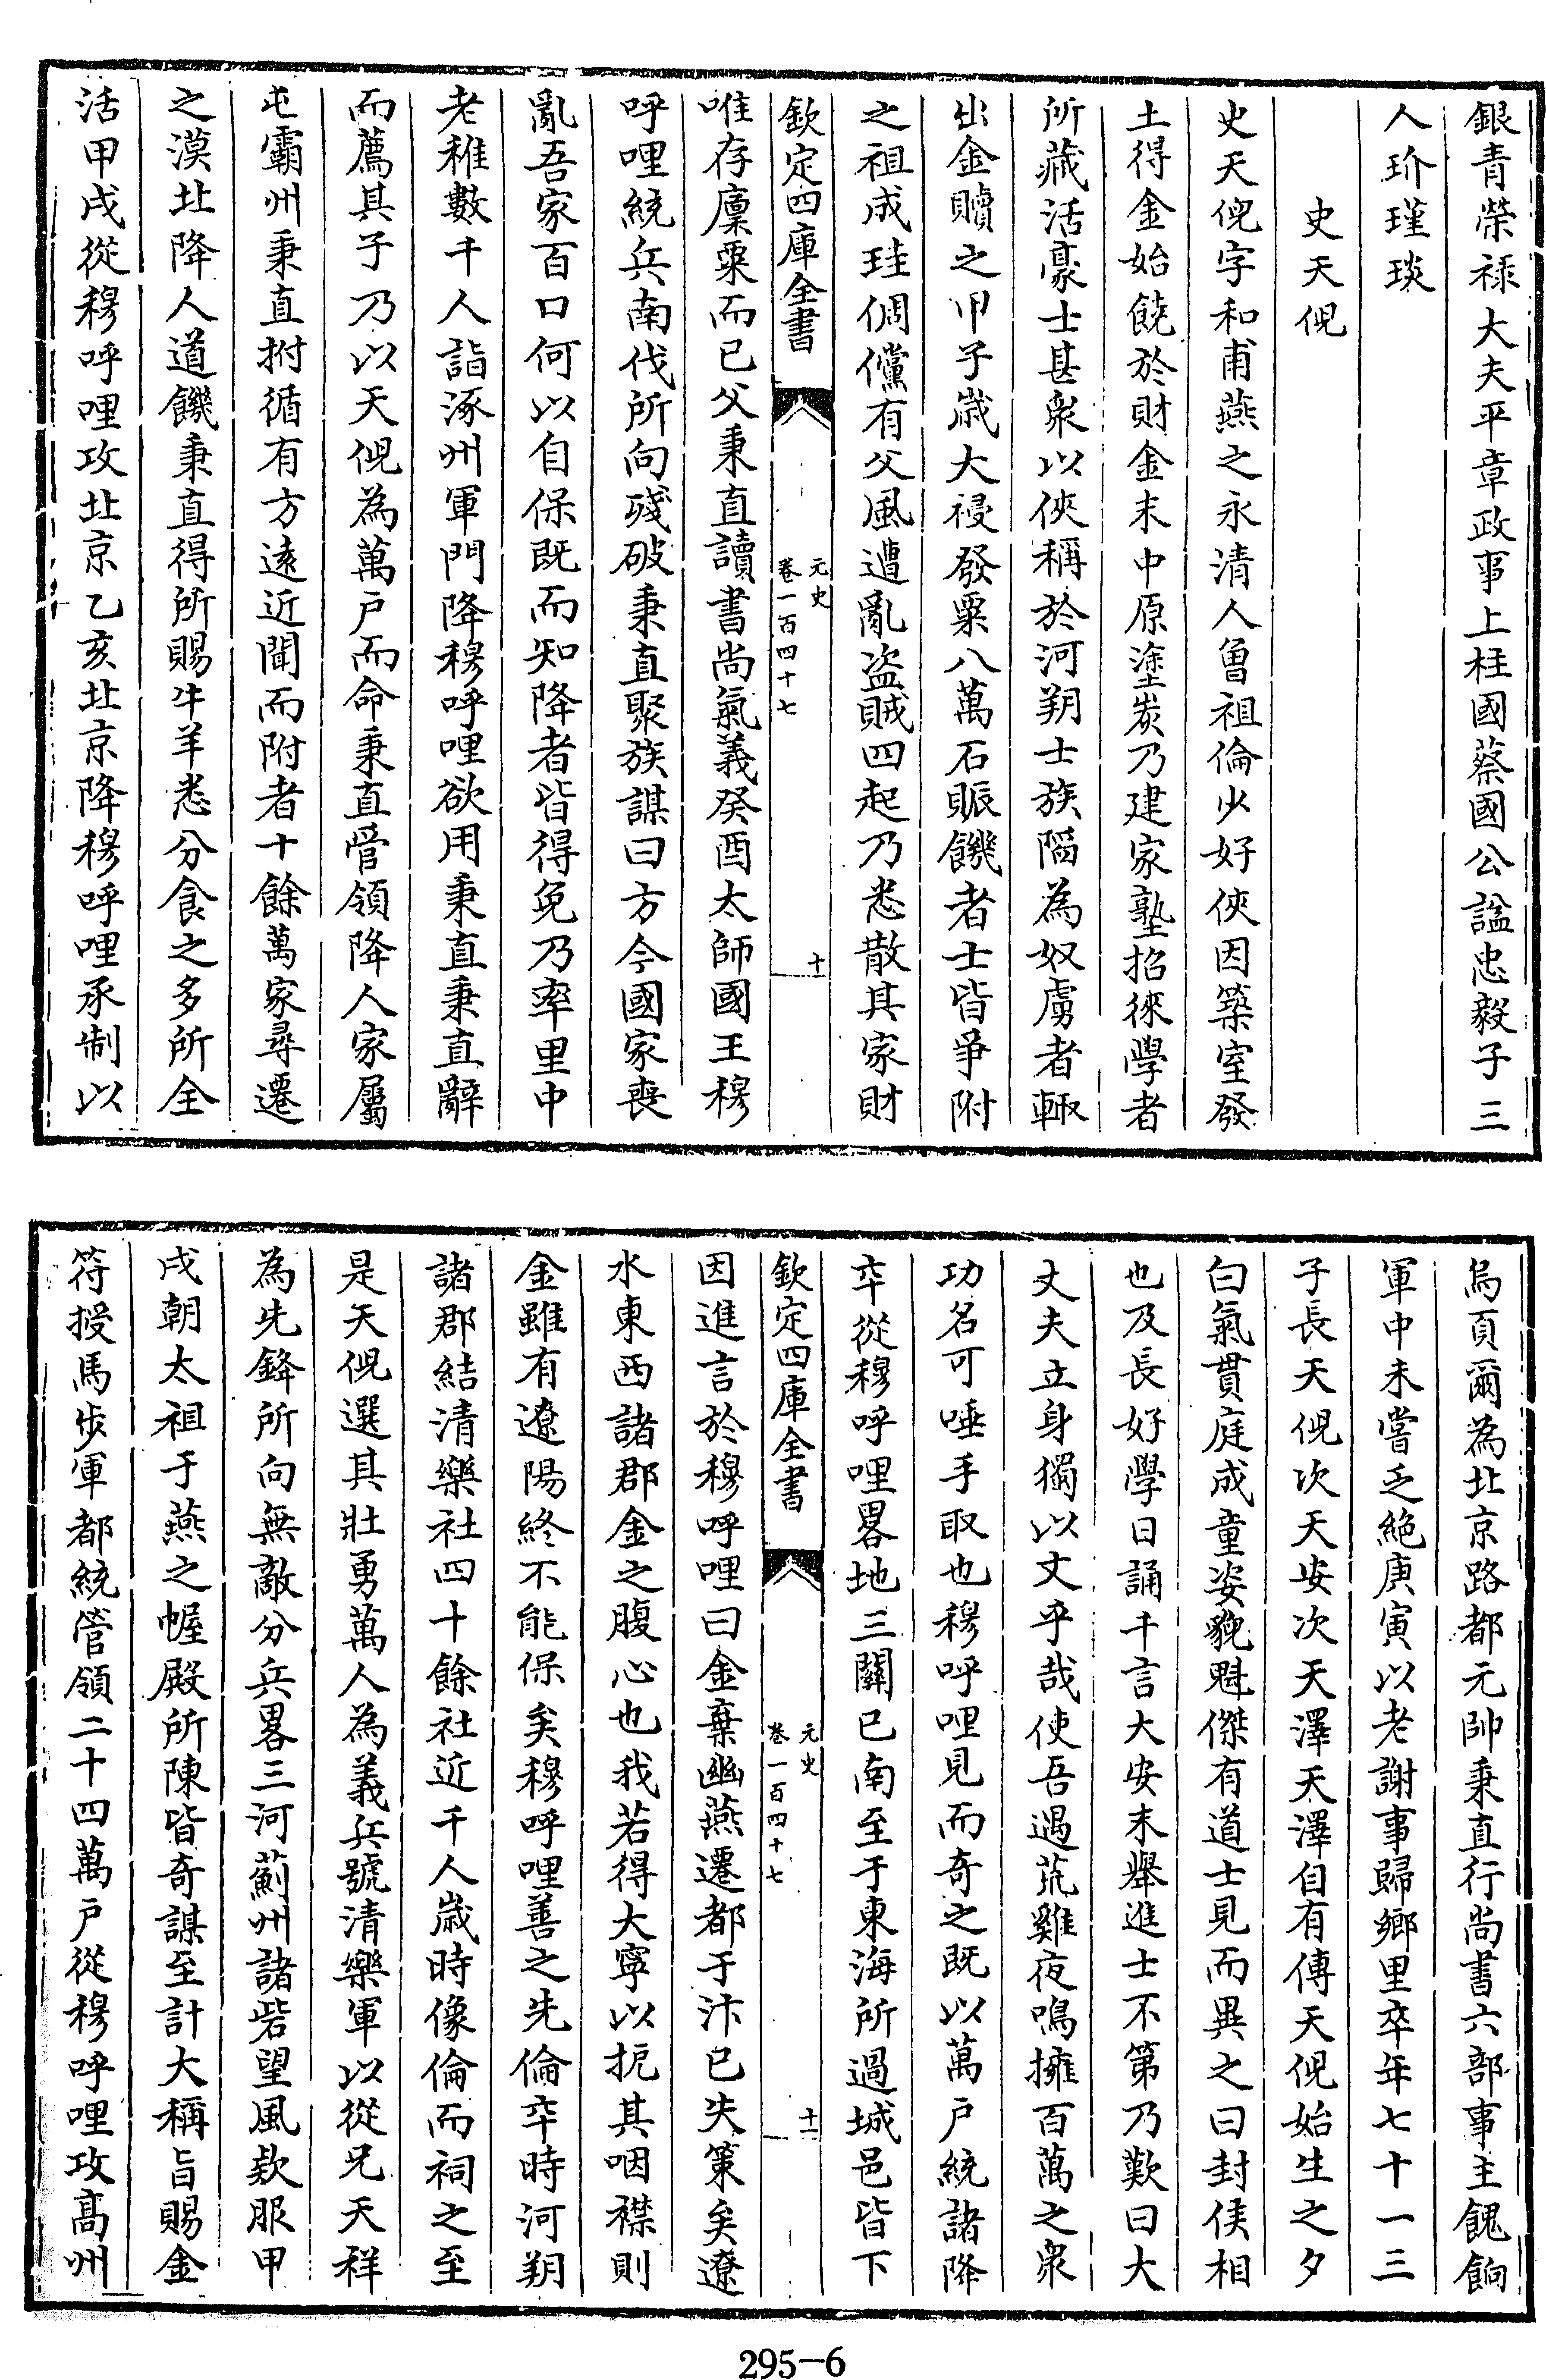 銀青榮祿大夫平章政事上柱國蔡國公諡忠毅子三
人玠瑾琰
史天倪
史天倪字和甫燕之永清人曾祖倫少好俠因築室發
土得金始饒於財金末中原塗炭乃建家塾招徠學者
所藏活豪士甚衆以俠稱於河朔士族陷為奴虜者輙
出金贖之甲子歳大祲發粟八萬石賑饑者士皆爭附
之祖成珪倜儻有父風遭亂盗賊四起乃悉散其家財
欽定四庫全書
元史
卷一百四十七
十
唯存廩粟而已父秉直讀書尚氣義癸酉太師國王穆
呼哩統兵南伐所向殘破秉直聚族謀曰方今國家喪
亂吾家百口何以自保既而知降者皆得免乃率里中
老稚數千人詣涿州軍門降穆呼哩欲用秉直秉直辭
而薦其子乃以天倪為萬戸而命秉直管領降人家屬
屯霸州秉直拊循有方遠近聞而附者十餘萬家尋遷
之漠北降人道饑秉直得所賜牛羊悉分食之多所全
活甲戌從穆呼哩攻北京乙亥北京降穆呼哩承制以
烏頁爾為北京路都元帥秉直行尚書六部事主餽餉
軍中未嘗乏絶庚寅以老謝事歸鄉里卒年七十一三
子長天倪次天安次天澤天澤自有傳天倪始生之夕
白氣貫庭成童姿貌魁傑有道士見而異之曰封侯相
也及長好學日誦千言大安末舉進士不第乃歎曰大
丈夫立身獨以文乎哉使吾遇荒雞夜鳴擁百萬之衆
功名可唾手取也穆呼哩見而奇之既以萬戸統諸降
卒從穆呼哩畧地三關已南至于東海所過城邑皆下
欽定四庫全書
元史
卷一百四十七
十一
因進言於穆呼哩曰金棄幽燕遷都于汴已失策矣遼
水東西諸郡金之腹心也我若得大寧以扼其咽襟則
金雖有遼陽終不能保矣穆呼哩善之先倫卒時河朔
諸郡結清樂社四十餘社近千人歳時像倫而祠之至
是天倪選其壯勇萬人為義兵號清樂軍以從兄天祥
為先鋒所向無敵分兵畧三河薊州諸砦望風欵服甲
戌朝太祖于燕之幄殿所陳皆奇謀至計大稱旨賜金
符授馬步軍都統管領二十四萬戸從穆呼哩攻高州
295-6